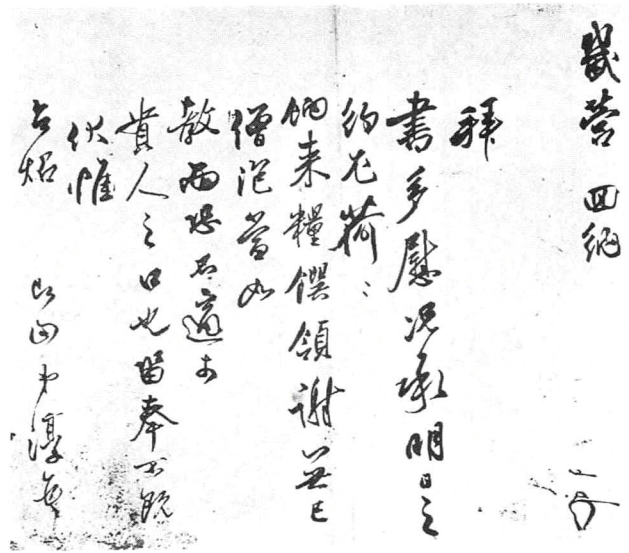 營 回納
拜
書多慰況承明日之
約尤荷〻
餉来糧饌領謝無已
僧泡當如
教而恐不適於
貴人之口也留奉不既
伏惟
台炤 即 弟淳